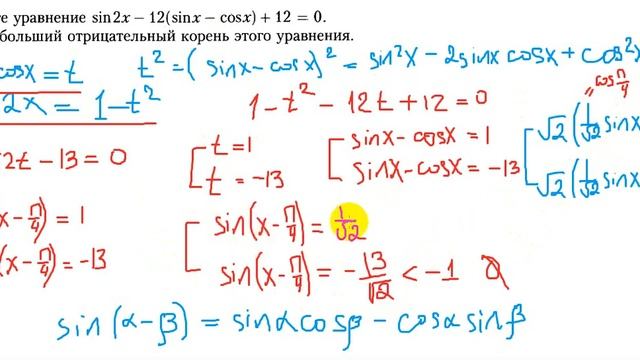 уравнение sin2x − 12(sinx − cosx) + 12 = 0.
больший отрицательный корень этого уравнения.
cosx = t
t² = (sinx − cosx)² = sin²x − 2sinx cosx + cos²
2x = 1 − t²
1 − t² − 12t + 12 = 0
cos π/4
2t − 13 = 0
t = 1
t = −13
sinx − cosx = 1
sinx − cosx = −13
√2(1/√2 sinx
√2(1/√2 sinx
x − π/4) = 1
(x − π/4) = −13
sin(x − π/4) = 1/√2
sin(x − π/4) = −13/√2 < −1
sin(α − β) = sinα cosβ − cosα sinβ